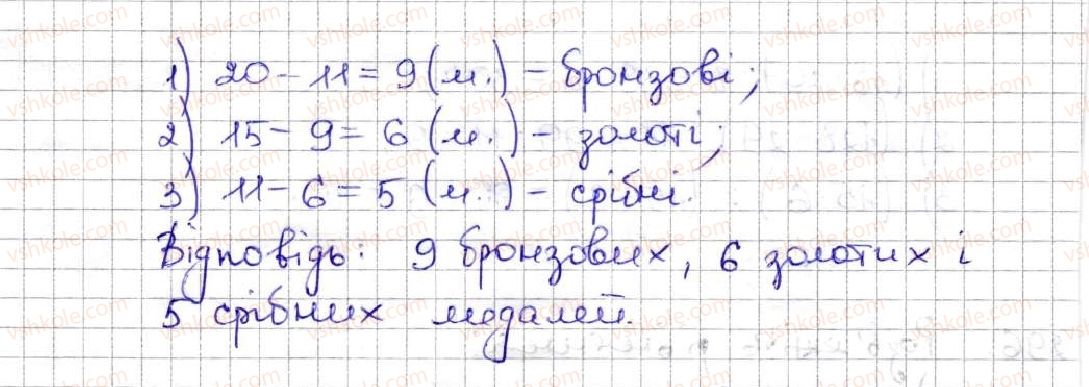 1) 20 - 11 = 9 (м.) - бронзові;
2) 15 - 9 = 6 (м.) - золоті;
3) 11 - 6 = 5 (м.) - срібні.
Відповідь: 9 бронзових, 6 золотих і
5 срібних медалей.